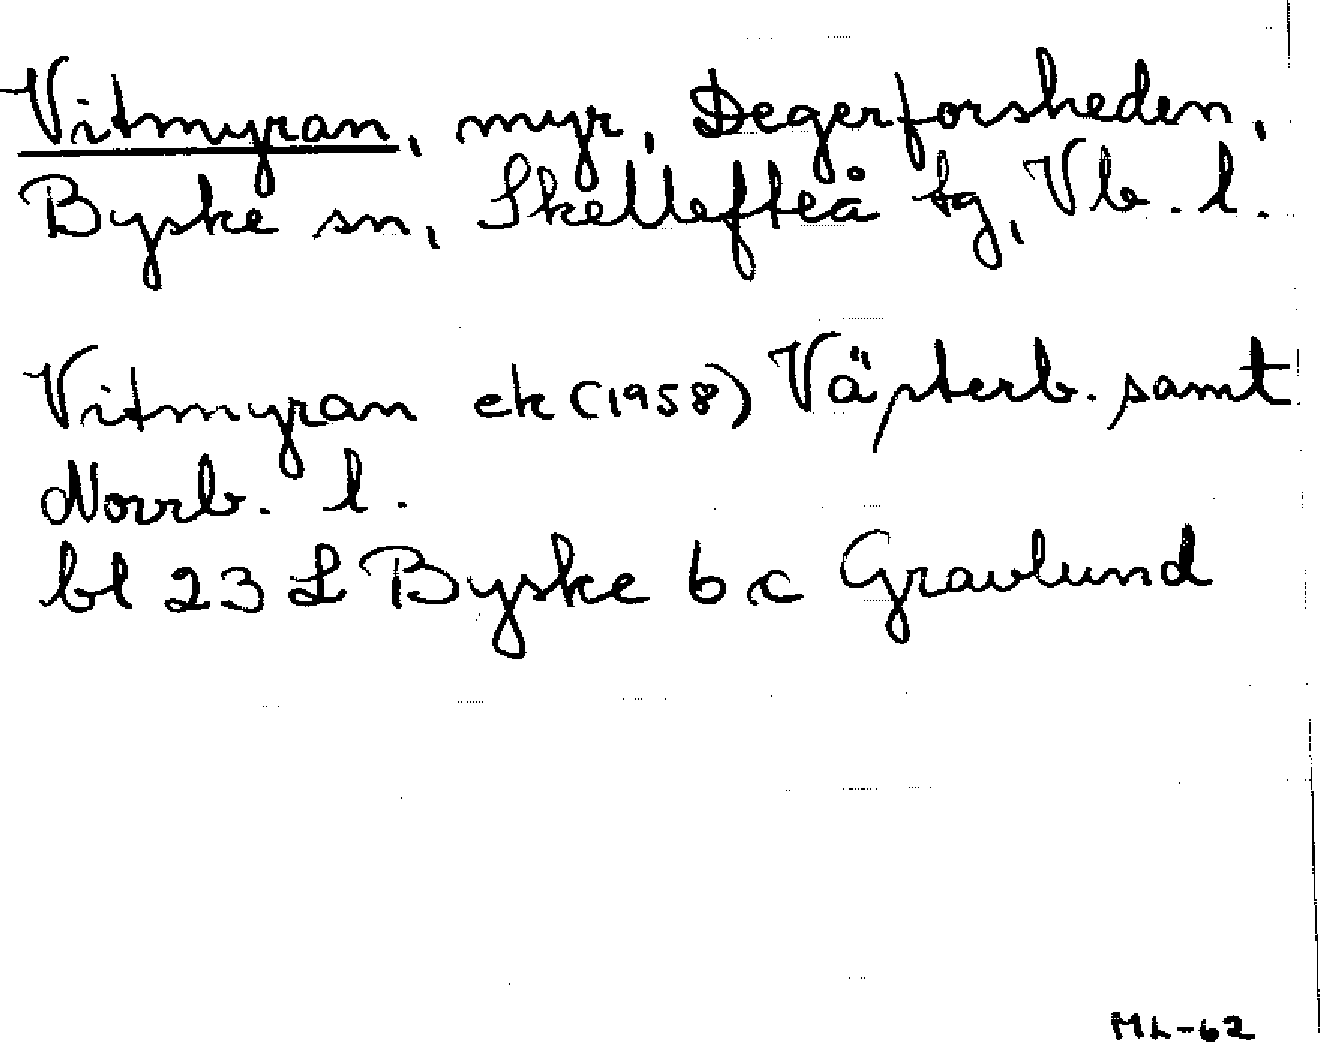 Vitmyran, myr, Degerforsheden,
Byske sn, Skellefteå tg, Vb. l.
Vitmyran ek (1958) Västerb. samt
Norrb. l.
bl 23 L Byske b c Gravlund
ML-62